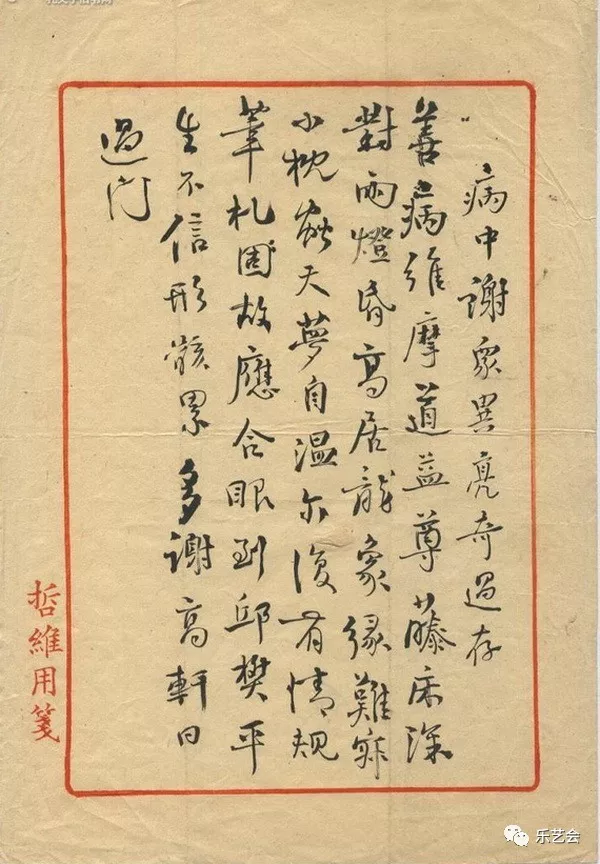 病中謝眾異亮奇過存
善病維摩道益尊藤床深
對雨燈昏高居龍象緣難
小枕天夢自温亦復有情規
筆札固故應合眼到邱樊平
生不信形骸累多謝高軒日
過門
哲維用箋
乐艺会